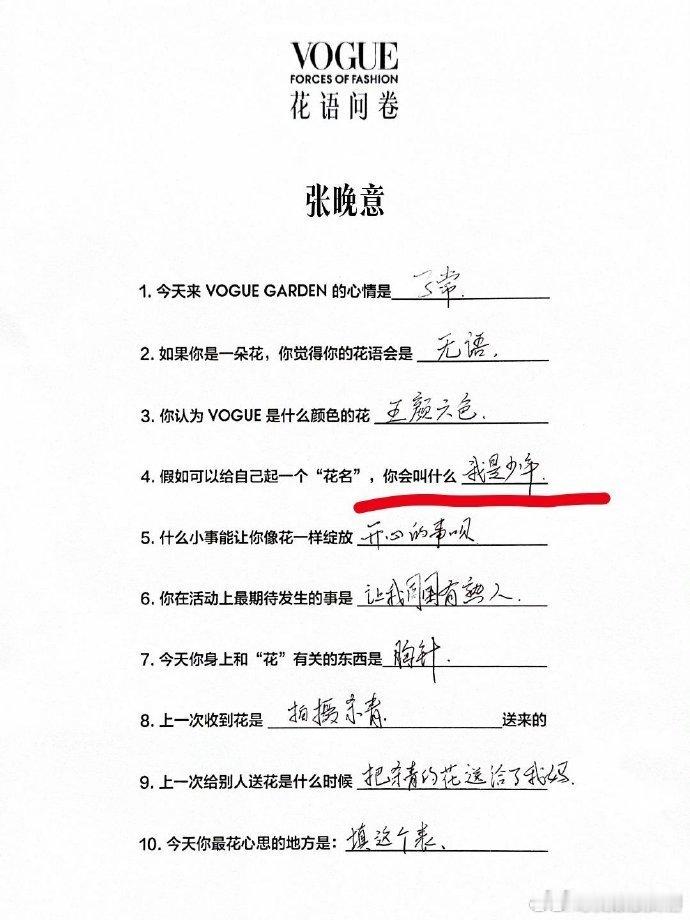 VOGUE
FORCES OF FASHION
花语问卷
张晚意
1. 今天来 VOGUE GARDEN 的心情是 了常.
2. 如果你是一朵花，你觉得你的花语会是 无语.
3. 你认为 VOGUE 是什么颜色的花 五颜六色.
4. 假如可以给自己起一个“花名”，你会叫什么 我是少年.
5. 什么小事能让你像花一样绽放 开心的事呗
6. 你在活动上最期待发生的事是 让我周围有熟人.
7. 今天你身上和“花”有关的东西是 胸针.
8. 上一次收到花是 拍摄杀青. 送来的
9. 上一次给别人送花是什么时候 把杀青的花送给了我妈.
10. 今天你最花心思的地方是： 填这个表.